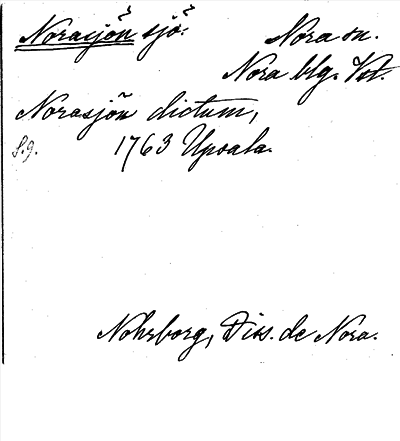 Norasjön sjö.
Nora sn.
Nora blg. Vst.
Norasjön dictum,
S.g.
1763 Upsala.
Nohrborg, Diss. de Nora.